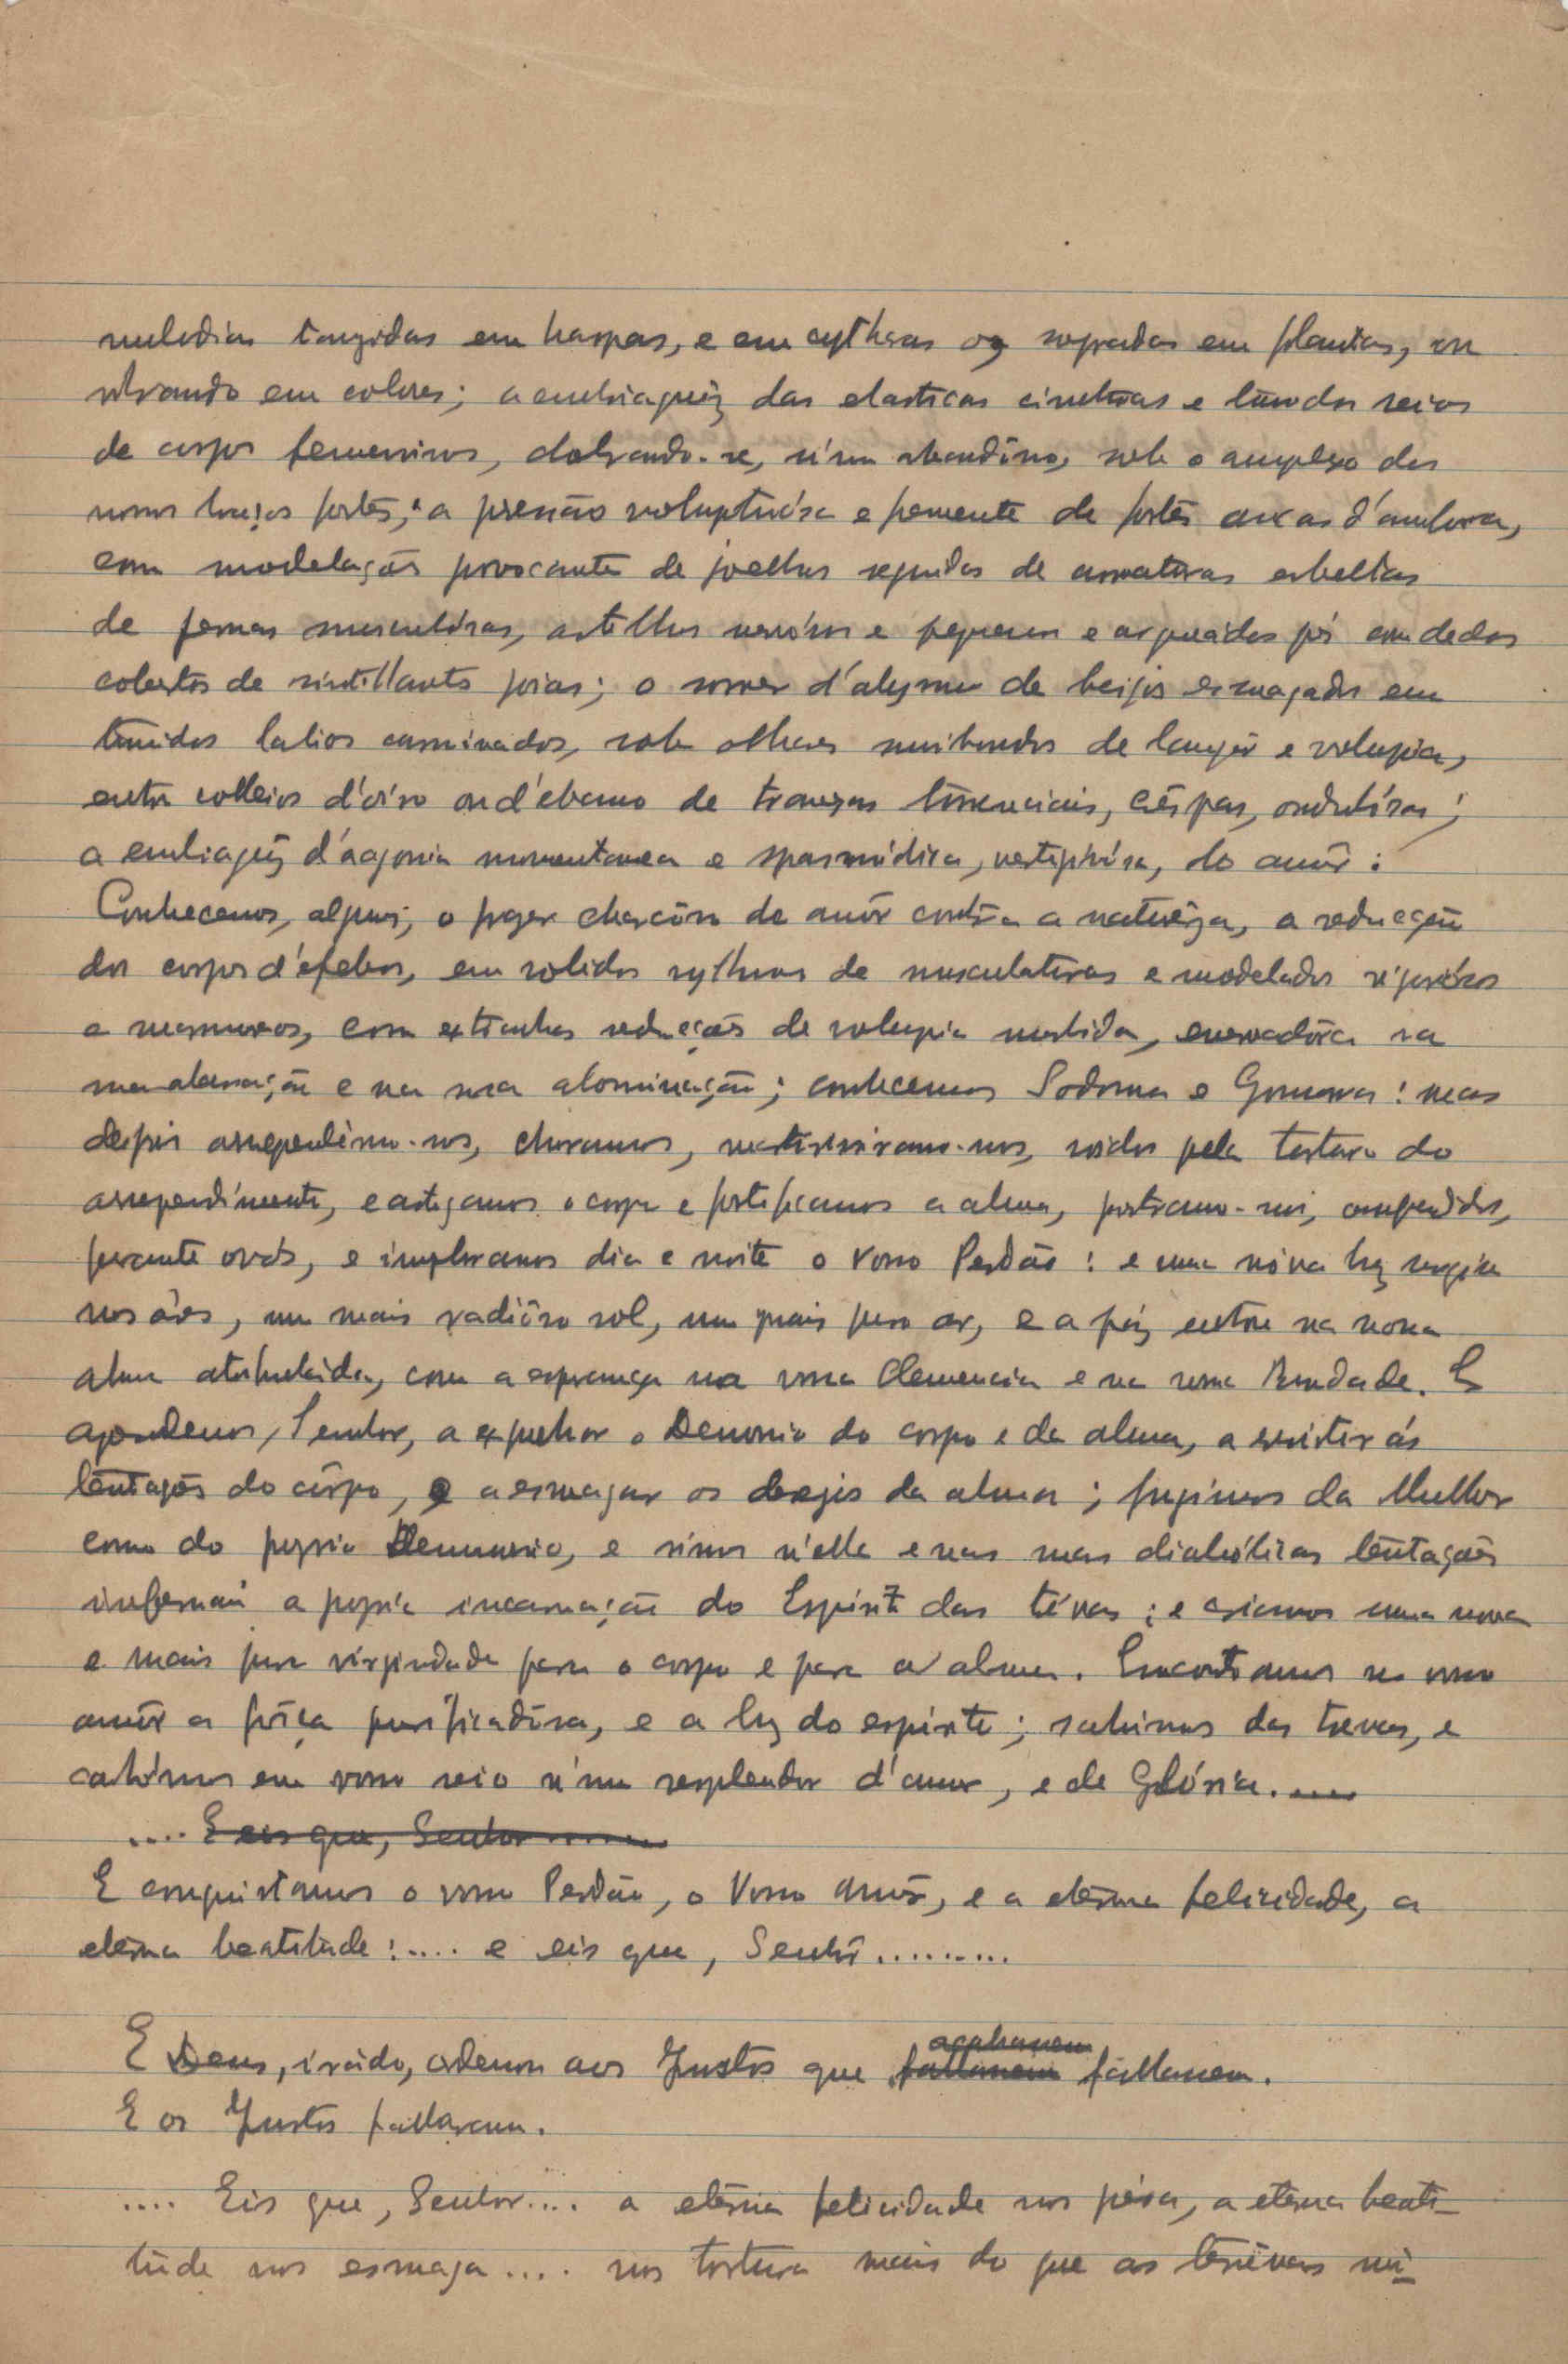 melodias tangidas em harpas, e em cytharas ou sopradas em flautas, ou
vibrando em colos; a embriaguêz das elasticas cinturas e tumidos seios
de corpos femeninos, dobrando-se, n'um abandôno, sob o amplexo dos
nossos braços fortes; a pressão voluptuósa e fremente de fortes ancas d'amfora,
com modelações provocantes de joelhos seguidos de curvaturas esbeltas
de pernas musculósas, artelhos nervósos e pequenos e arqueados pés com dedos
cobertos de sintillantes joias; o sorver d'alysmo de beijos esmagados em
tumidos labios carminados, sob olhares moribundos de langôr e volupia,
entre colleios d'óiro ou d'ebano de tranças crêspas, ondulósas;
a embriaguêz d'agonia momentanea e spasmódica, vertiginósa, do amôr:
Conhecemos, alguns, o prazer do amôr contra a naturêza, a seducção
dos corpos d'efebos, em solidos rythmos de musculaturas e modelados vigorósos
e marmoreos, com extranhas seducções de volupia morbida, enervadôra na
sua aberração e na sua abominação; conhecemos Sodoma e Gomorra: mas
depois arrependêmo-nos, choramos, martirisámo-nos, roidos pela tortura do
arrependimento, castigamos o corpo e fortificamos a alma, prostramo-nos, compungidos,
perante vós, e imploramos dia e noite o Vosso Perdão: e uma nóva luz surgiu
nos áres, um mais radiôso sol, um mais puro ar, e a páz entrou na nossa
alma atribulada, com a esperança na vossa Clemencia e na vossa Bondade. E
aprendemos, Senhor, a expulsar o Demonio do corpo e da alma, a resistir ás
tentações do côrpo, e a esmagar os desejos da alma; fugimos da Mulher
como do proprio Demonio, e vimos n'ella e nas suas diabólicas tentações
infernais a propria incarnação do Espirito das trévas; e criamos uma nova
e mais pura virgindade para o corpo e para a alma. Encontramos no vosso
amôr a fôrça purificadôra, e a luz do espirito; sahimos das trevas, e
cahimos em vosso seio n'um resplendor d'amor, e de Glória.....
.... E eis que, Senhor ........
E conquistamos o vosso Perdão, o Vosso Amôr, e a etérna felicidade, a
etérna beatitude:.... e eis que, Senhôr.........
acabassem
E Deus, irádo, ordenou aos Justos que fallassem fallassem.
E os Justos fallaram.
.... Eis que, Senhor.... a etérna felicidade nos pésa, a etérna beati-
tude nos esmaga.... nos tortura mais do que as